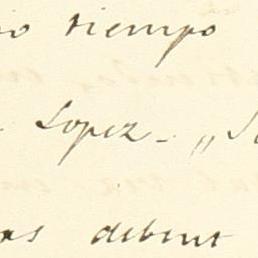 io tiempo
Lopez - „ S
as debent